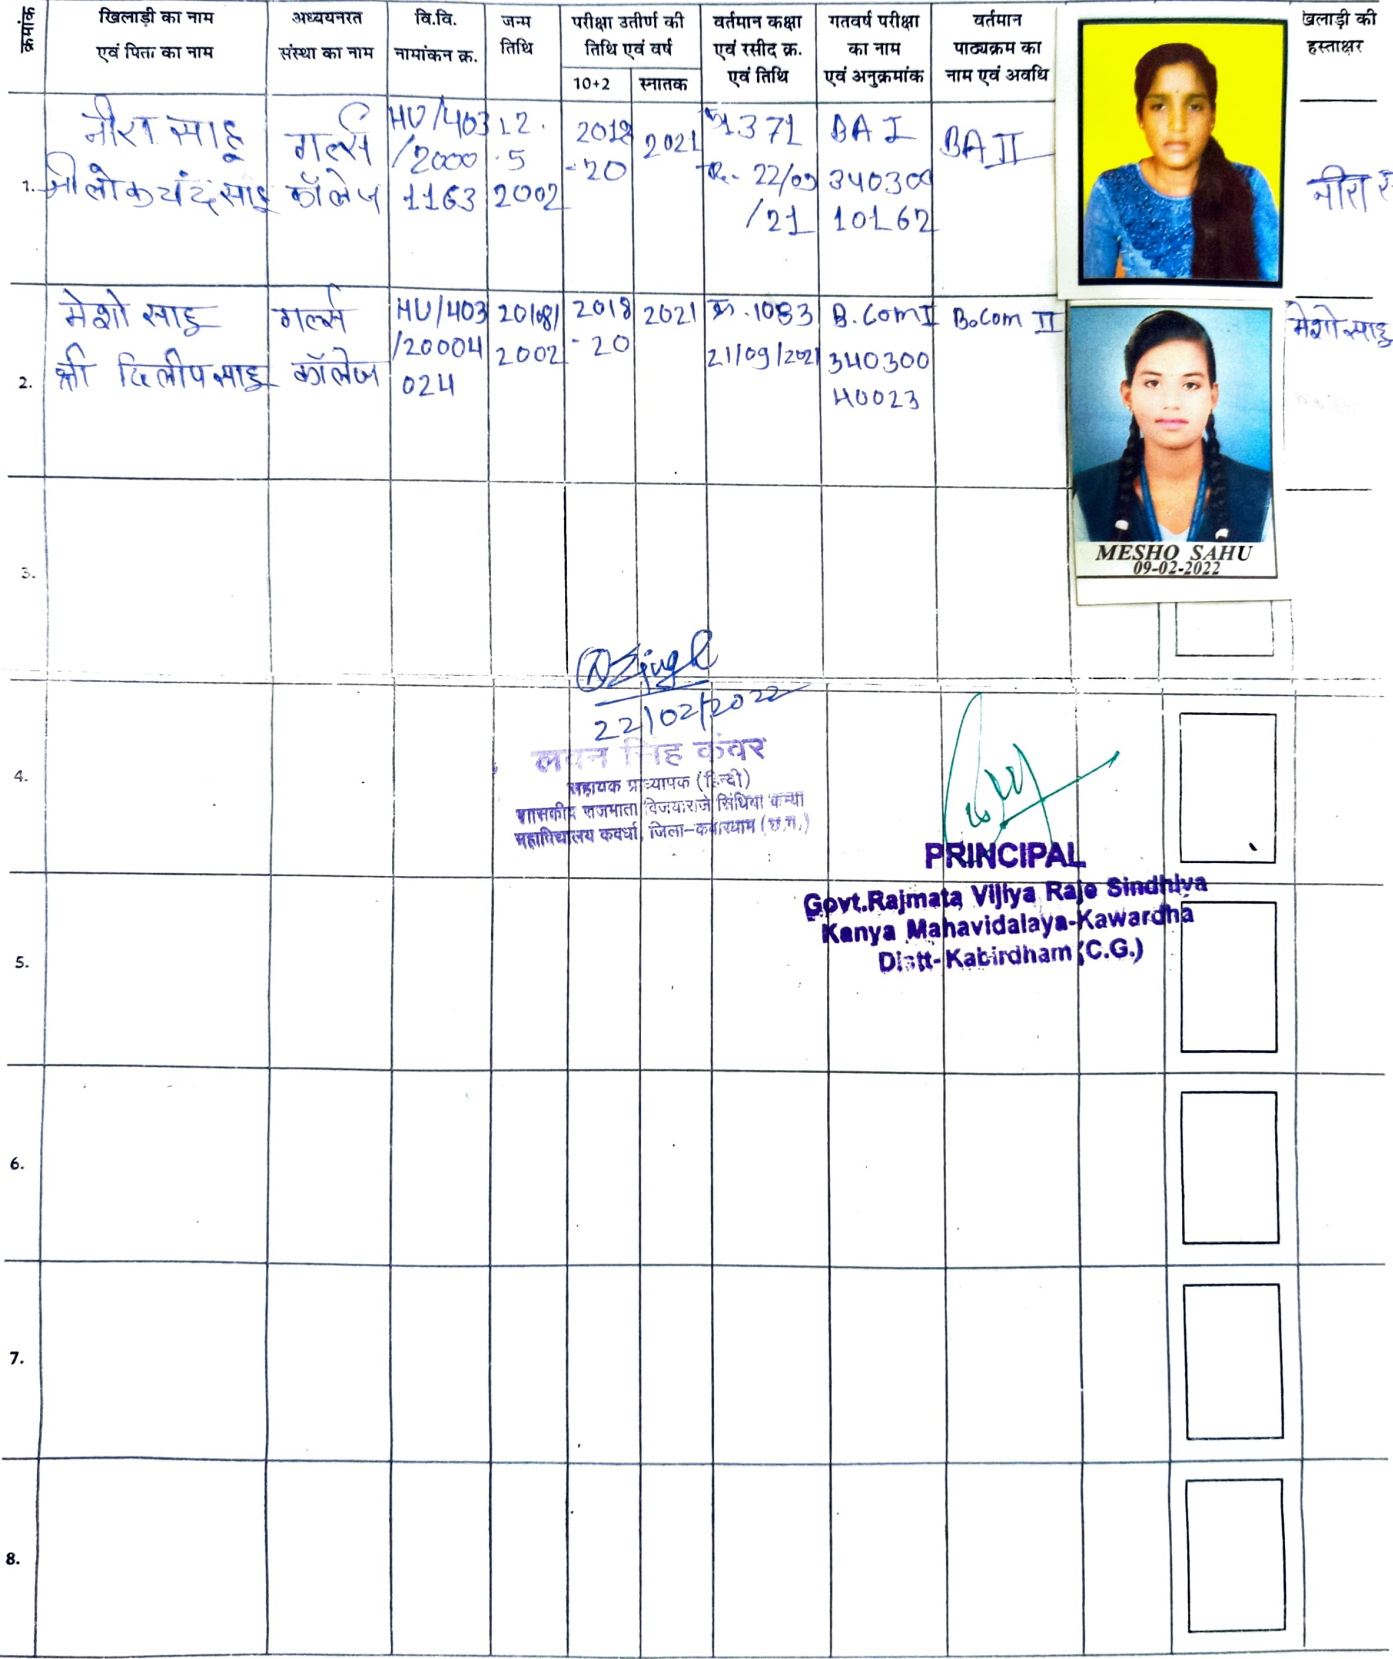 क्रमांक
खिलाड़ी का नाम
एवं पिता का नाम
अध्ययनरत
संस्था का नाम
वि.वि.
नामांकन क्र.
जन्म
तिथि
परीक्षा उतीर्ण की
तिथि एवं वर्ष
10+2
स्नातक
वर्तमान कक्षा
एवं रसीद क्र.
एवं तिथि
गतवर्ष परीक्षा
का नाम
एवं अनुक्रमांक
वर्तमान
पाठ्यक्रम का
नाम एवं अवधि
खिलाड़ी की
हस्ताक्षर
1.
नीरा साहू
श्री लोकचंद साहू
गर्ल्स
कॉलेज
HU/403
/2000
1163
12.
.5
2002
2018
-20
2021
1371
22/09
/21
BA I
340300
10162
BA II
नीरा
2.
मेशो साहू
श्री दिलीप साहू
गर्ल्स
कॉलेज
HU/403
/20004
024
20/08/
2002
2018
-20
2021
क्र.1083
21/09/2021
B.Com I
340300
40023
B.Com II
मेशो साहू
MESHO SAHU
09-02-2022
3.
22/02/2022
लखन सिंह कंवर
सहायक प्राध्यापक (हिन्दी)
शासकीय राजमाता विजयाराजे सिंधिया कन्या
महाविद्यालय कवर्धा, जिला-कबीरधाम (छ.ग.)
4.
PRINCIPAL
Govt.Rajmata Vijiya Raje Sindhiya
Kanya Mahavidalaya-Kawardha
Distt-Kabirdham (C.G.)
5.
6.
7.
8.